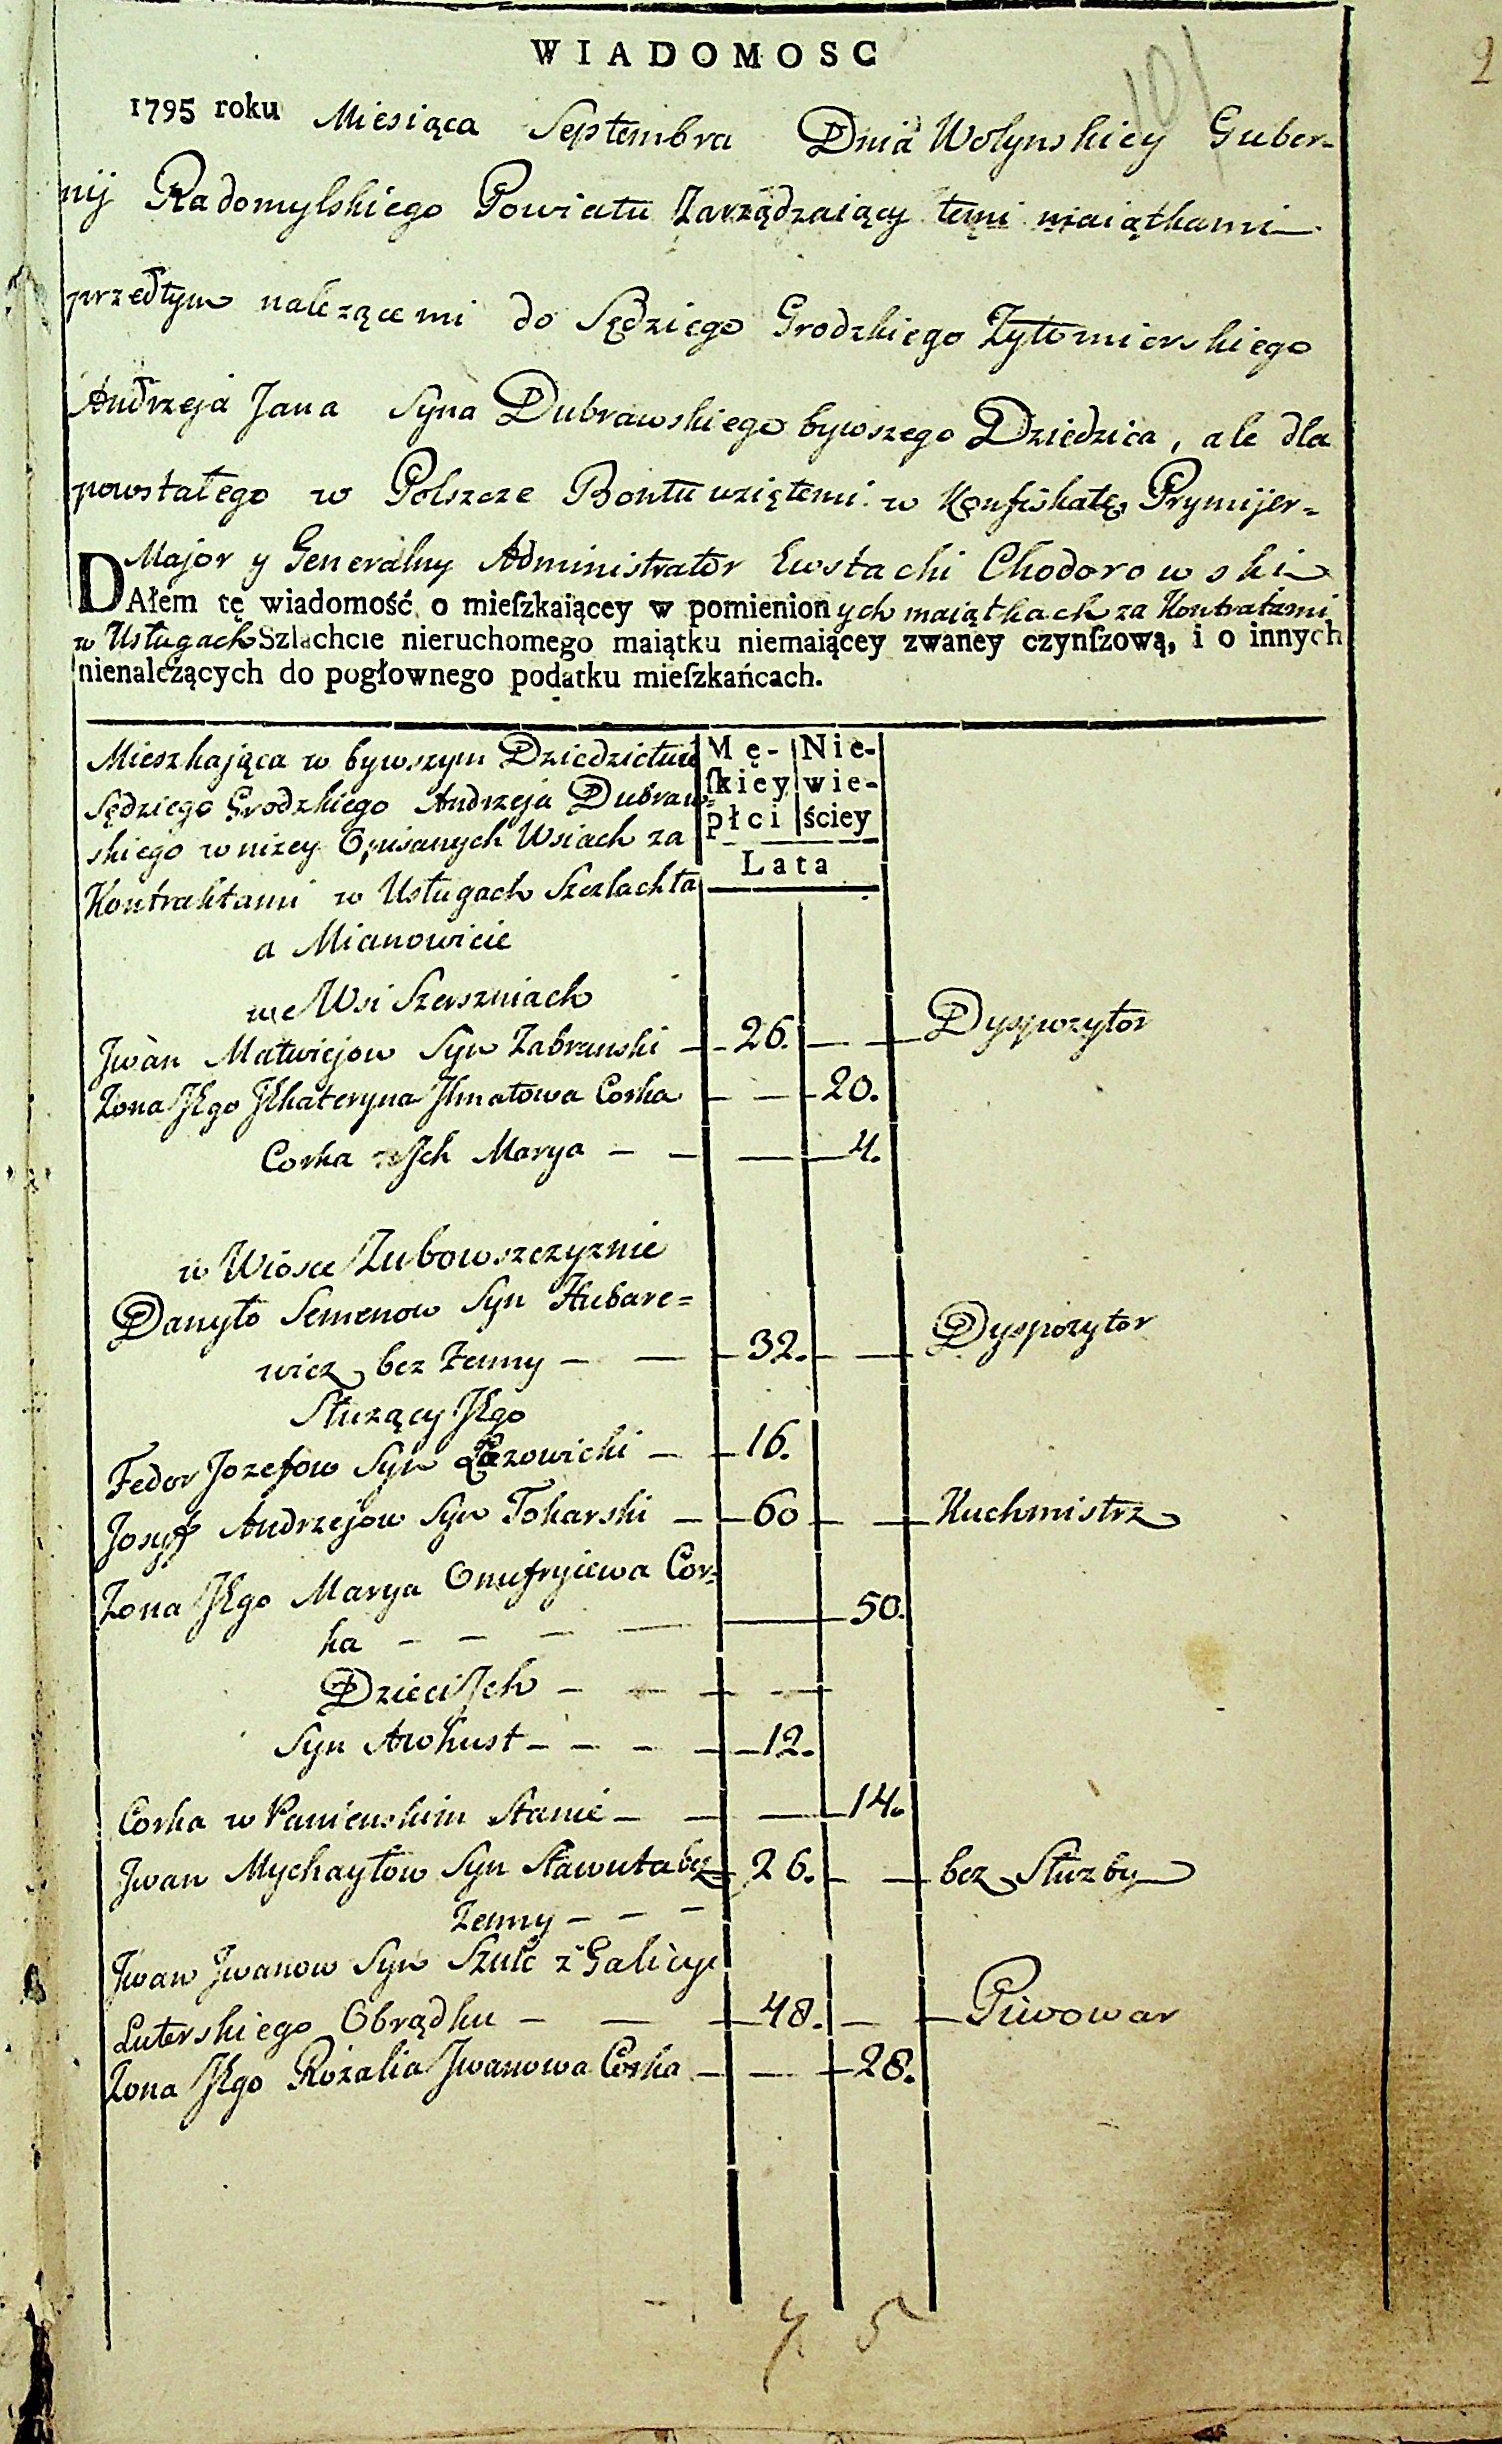 2
101
WIADOMOSC
1795 roku Miesiąca Septembra Dnia Wołynskiey Guber-
nij Radomylskiego Powiatu Zarządzaiący temi maiątkami
przedtym należącemi do Sędziego Grodzkiego Zytomierskiego
Andrzeja Jana Syna Dubrawskiego bywszego Dziedzica, ale dla
powstałego w Polszcze Bontu wziętemi w Konfiskatę Prymijer-
Major y Generalny Administrator Ewstachi Chodorowski
DAłem tę wiadomość o mieſzkaiącey w pomienionych maiątkach za Kontraktami
w Usługach Szlachcie nieruchomego maiątku niemaiącey zwaney czynſzową, i o innych
nienależących do pogłownego podatku mieſzkańcach.
Mieszkająca w bywszym Dziedzictwie
Sędziego Grodzkiego Andrzeja Dubraw=
skiego w niżey Opisanych Wsiach za
Kontraktami w Usługach Szezlachta
a Mianowicie
Mę- Nie-
ſkiey wie-
płci ściey
Lata
we Wsi Szerszniach
Jwan Matwiejow Syn Zabranski — 26. — Dyspozytor
Zona Jego Jkhateryna Jhnatowa Corka — — 20.
Corka Jch Marya — — 4.
w Wiosce Zubowszczyznie
Danyło Semenow Syn Hubare=
wicz bez Zenny — — 32. — Dyspozytor
Służący Jego
Fedor Jozefow Syn Łozowicki — 16.
Josyf Andrzejow Syn Tokarski — 60 — Kuchmistrz
Zona Jego Marya Onufryiewa Cor=
ka — — — — 50.
Dzieci Jch — — — —
Syn Awhust — — — — 12.
Corka w Panienskim Stanie — — — 14.
Jwan Mychayłow Syn Sławuta bez 26. — bez Służby
Zenny — — —
Jwan Jwanow Syn Szulc z Galicyi
Luterskiego Obrądku — — 48. — Piwowar
Zona Jego Rozalia Jwanowa Corka — — 28.
7 5